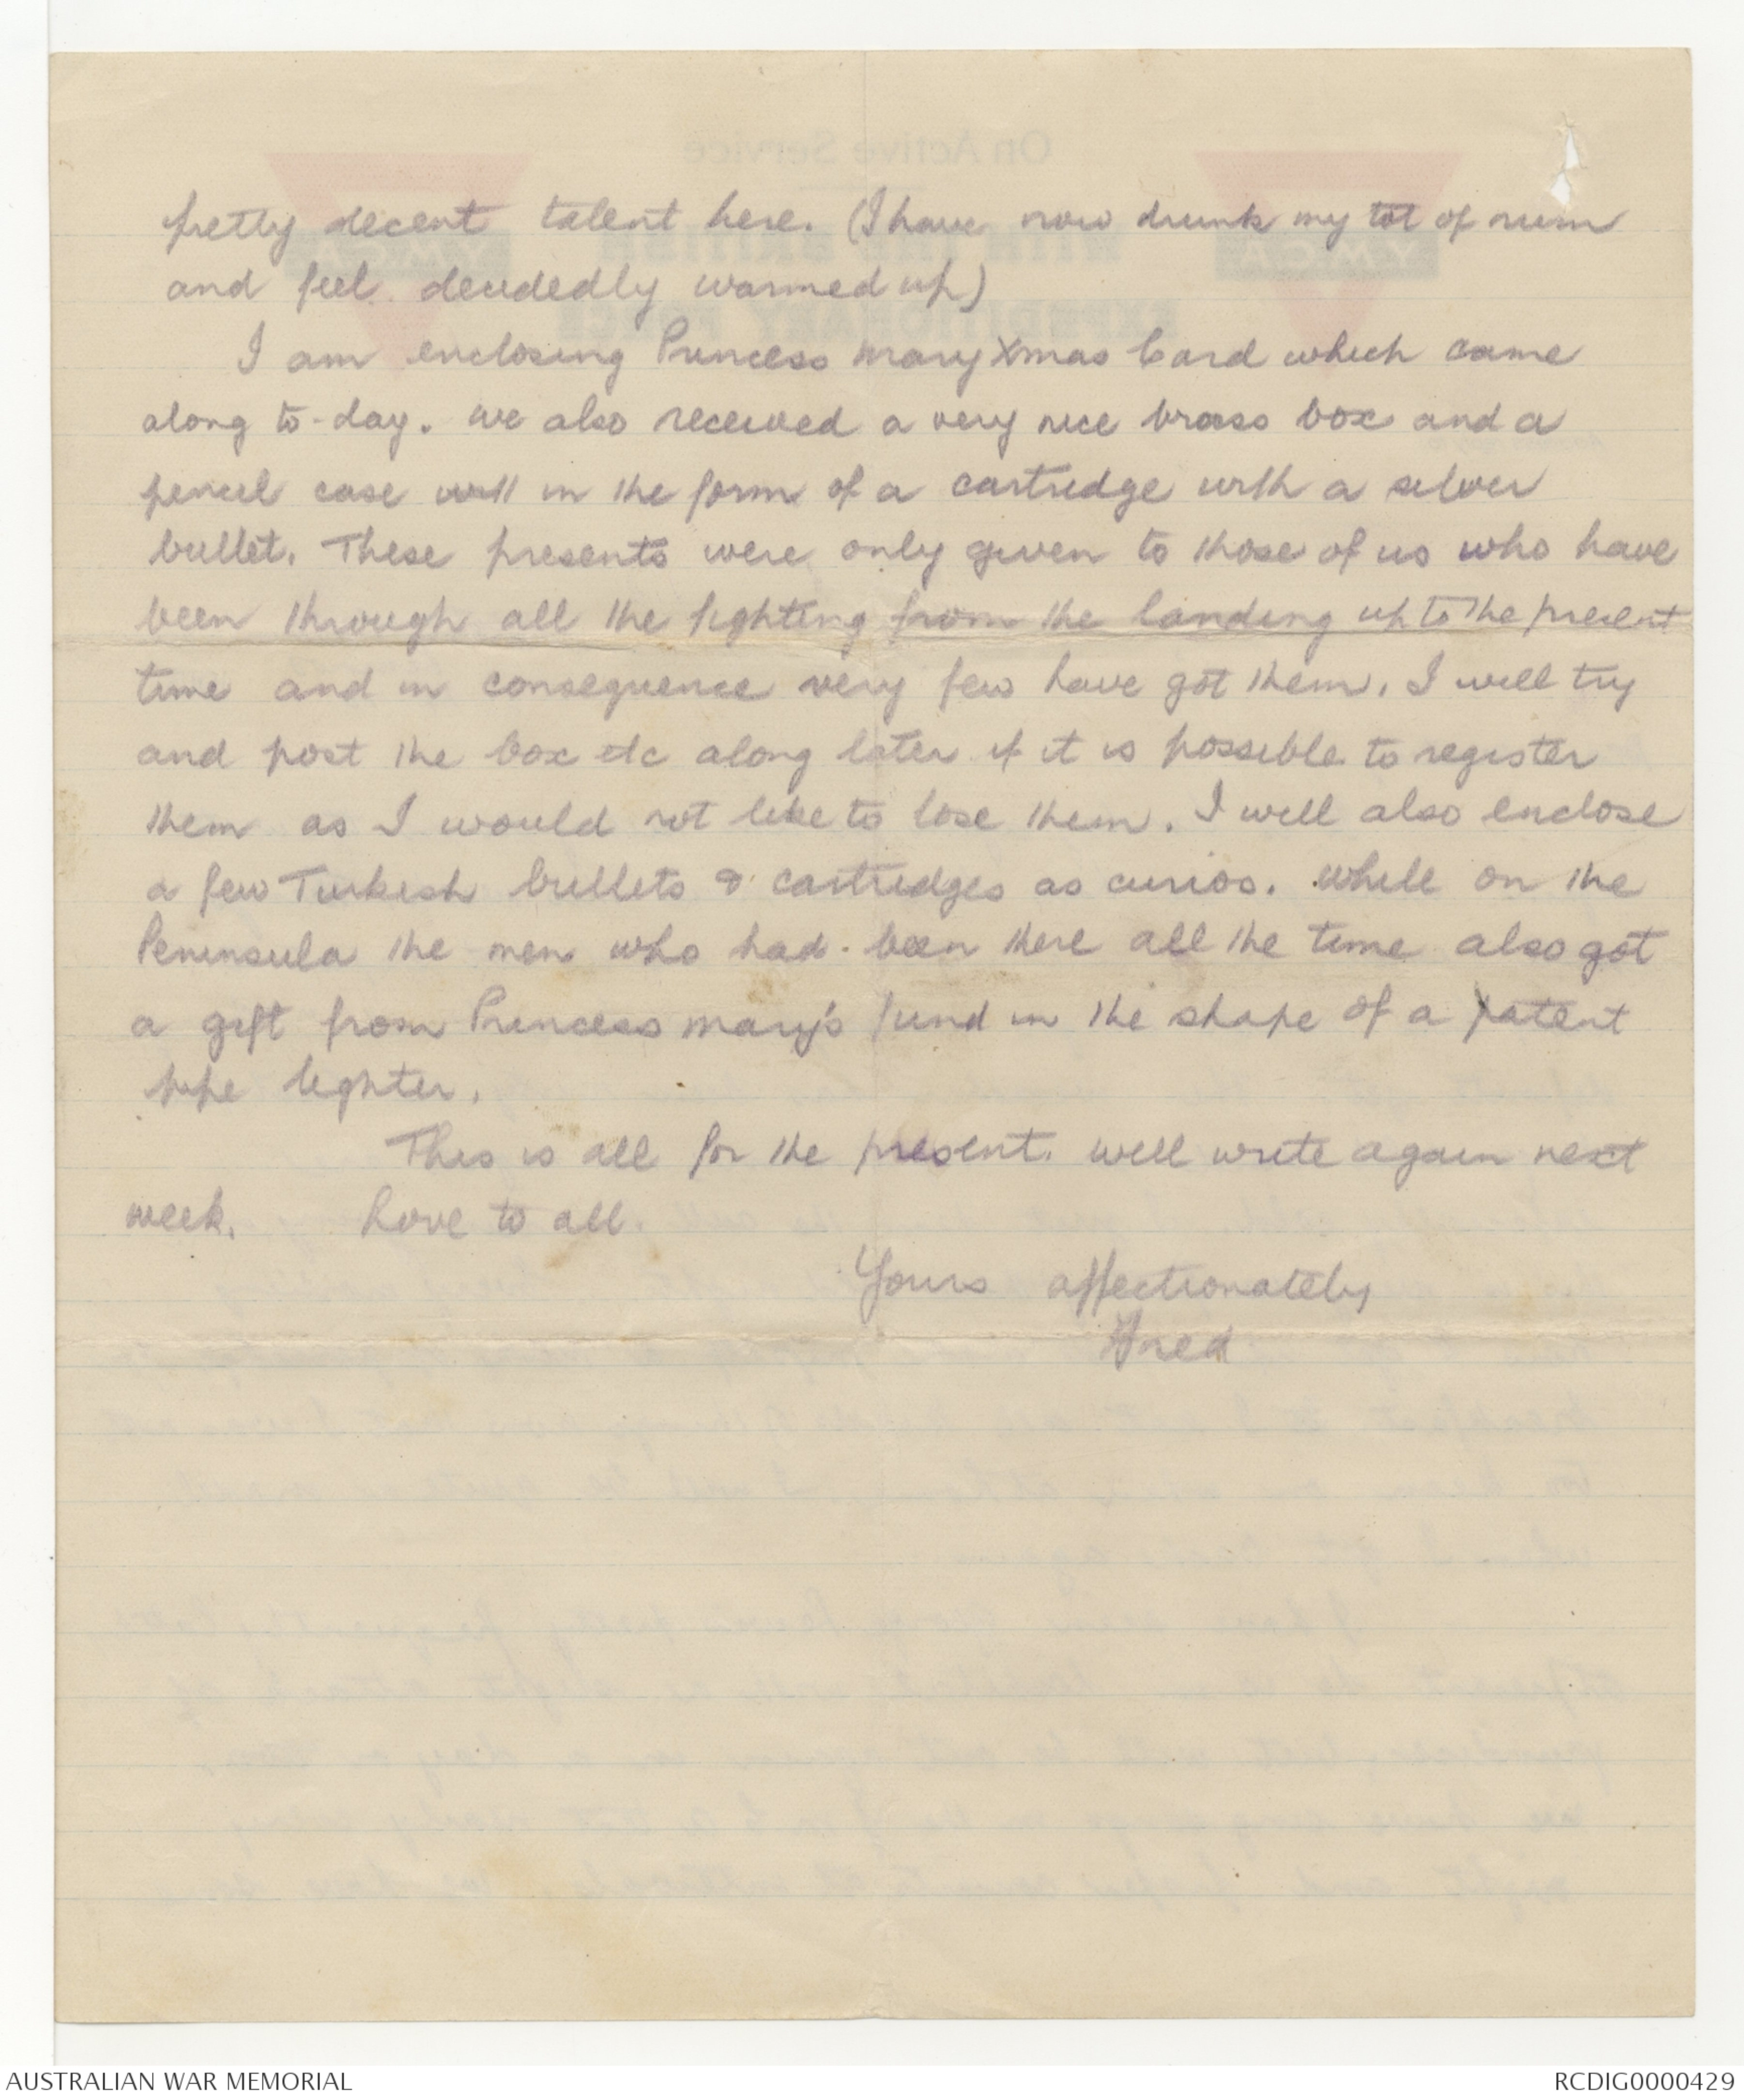 pretty decent talent here. (I have now drunk my tot of rum
and feel decidedly warmed up)
I am enclosing Princess Mary Xmas Card which came
along to-day. We also received a very nice brass box and a
pencil case in the form of a cartridge with a silver
bullet. These presents were only given to those of us who have
been through all the fighting from the landing up to the present
time and in consequence very few have got them. I will try
and post the box etc along later if it is possible to register
them as I would not like to lose them. I will also enclose
a few Turkish bullets & cartridges as curios. While on the
Peninsula the men who had been there all the time also got
a gift from Princess Mary's fund in the shape of a patent
pipe lighter.
This is all for the present. Will write again next
week. Love to all.
Yours affectionately
Fred
On Active Service
WITH THE BRITISH
EXPEDITIONARY FORCE
Y.M.C.A
Y.M.C.A
AUSTRALIAN WAR MEMORIAL
RCDIG0000429